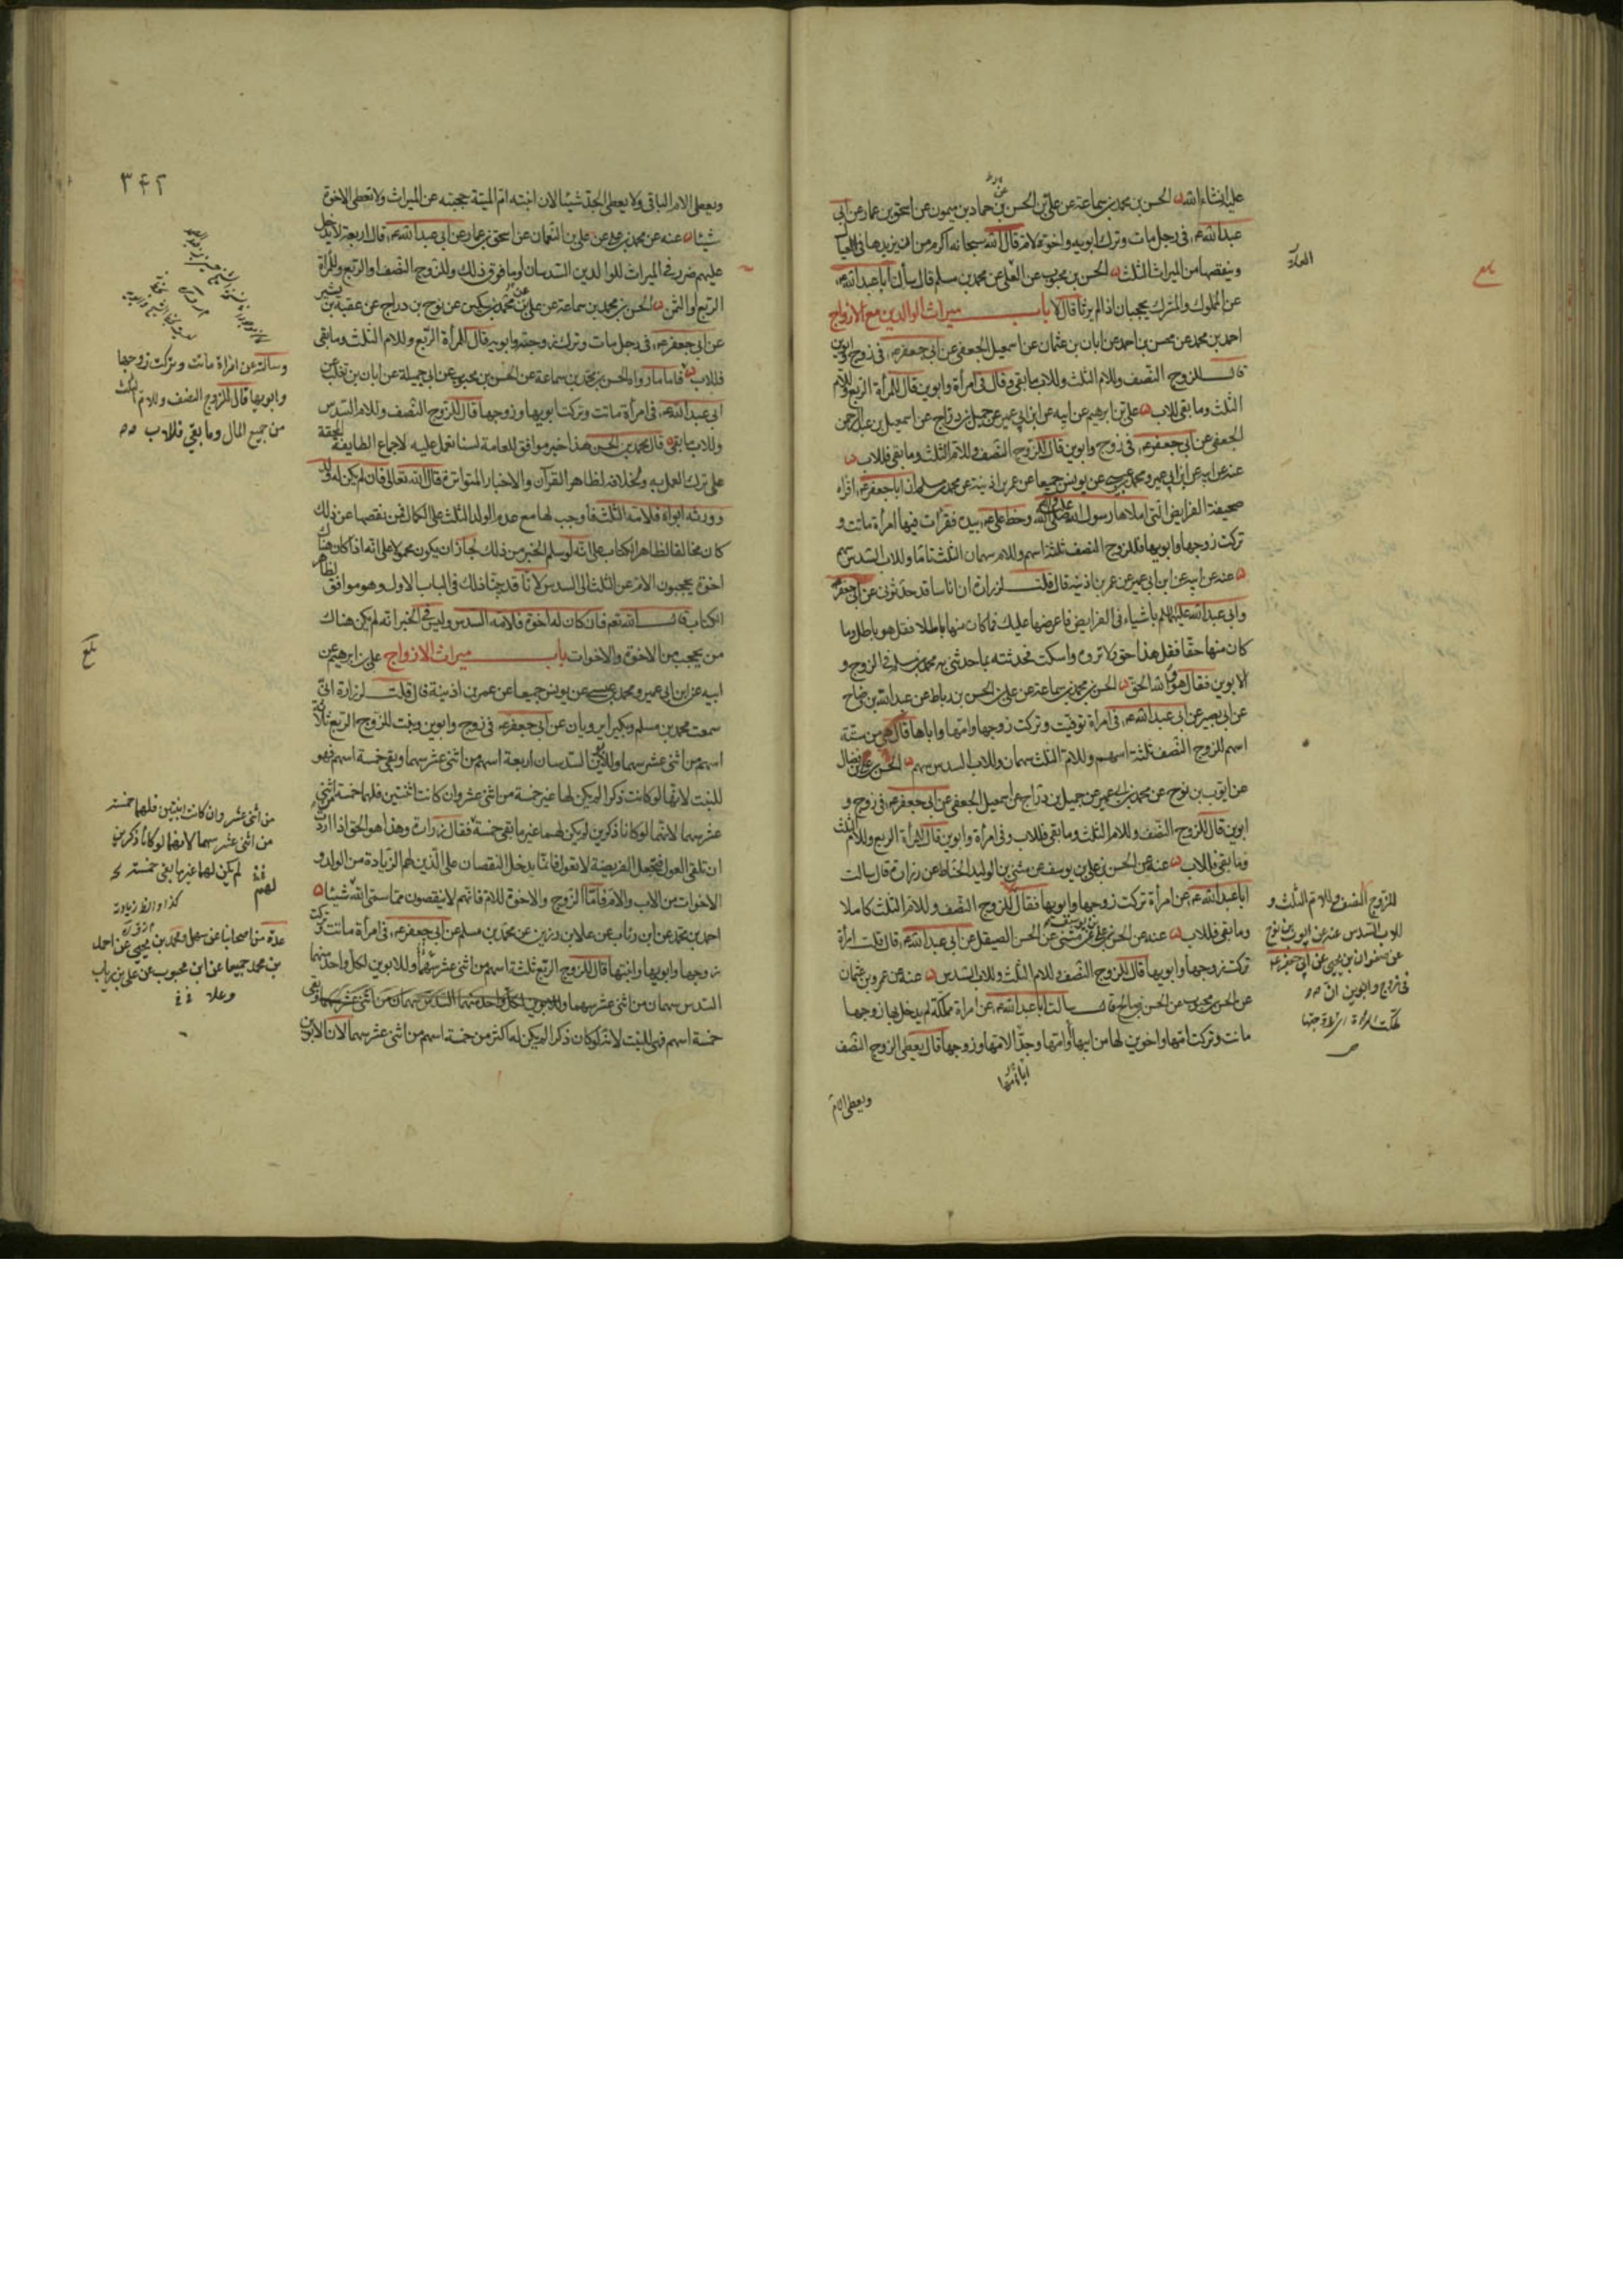 عليه انشاء الله الحسن بن محمد بن سماعة عن علي بن الحسن بن حماد بن ميمون عن اسحق بن عمار عن ابي
عبد الله ع في رجل مات وترك ابويه واخوة لام قال الله سبحانه اكرم من ان يزيدها في العيال
وينقصها من الميراث الثلث الحسن بن محبوب عن العلا عن محمد بن مسلم قال سألت ابا عبد الله ع
عن المملوك والمشرك يحجبان اذا لم يرثا قال لا باب ميراث الوالدين مع الازواج
احمد بن محمد عن محسن بن احمد عن ابان بن عثمان عن اسمعيل الجعفي عن ابي جعفر ع في زوج وابوين
قال للزوج النصف وللام الثلث وللاب ما بقي وقال في امرأة وابوين قال للمرأة الربع وللام
الثلث وما بقي للاب علي بن ابرهيم عن ابيه عن ابن ابي عمير عن جميل بن دراج عن اسمعيل بن عبد الرحمن
الجعفي عن ابي جعفر ع في زوج وابوين قال للزوج النصف وللام الثلث وما بقي فللاب
عنه عن ابيه عن ابن ابي عمير ومحمد بن عيسى عن يونس جميعا عن عمر بن اذينة عن محمد بن مسلم ان ابا جعفر ع اقراه
صحيفة الفرايض التي املاها رسول الله صلى الله عليه وآله وخط علي ع بيده فقرأت فيها امرأة ماتت و
تركت زوجها وابويها فللزوج النصف ثلثة اسهم وللام سهمان الثلث تاما وللاب السدس سهم
عنه عن ابيه عن ابن ابي عمير عن عمر بن اذينة قال قلت لزرارة ان اناسا قد حدثوني عن ابي جعفر
وابي عبد الله عليهما السلم باشياء في الفرايض فاعرضها عليك فما كان منها باطلا فقل هو باطل وما
كان منها حقا فقل هذا حق ولا تروه واسكت فحدثته بما حدثني به محمد بن مسلم في الزوج و
الابوين فقال هو والله الحق الحسن بن محمد بن سماعة عن علي بن الحسن بن رباط عن عبد الله بن وضاح
عن ابي بصير عن ابي عبد الله ع في امرأة توفيت وتركت زوجها وامها واباها قال هي من ستة
اسهم للزوج النصف ثلثة اسهم وللام الثلث سهمان وللاب السدس سهم الحسن بن علي بن فضال
عن ايوب بن نوح عن محمد بن ابي عمير عن جميل بن دراج عن اسمعيل الجعفي عن ابي جعفر ع في زوج و
ابوين قال للزوج النصف وللام الثلث وما بقي فللاب وفي امرأة وابوين قال للمرأة الربع وللام الثلث
وما بقي فللاب عنه عن الحسن بن علي بن يوسف عن مثنى بن الوليد الحناط عن زرارة قال سالت
ابا عبد الله ع عن امرأة تركت زوجها وابويها فقال للزوج النصف وللام الثلث كاملا
وما بقي فللاب عنه عن الحسن بن علي بن يوسف عن مثنى عن الحسن الصيقل عن ابي عبد الله ع قال قلت امرأة
تركت زوجها وابويها قال للزوج النصف وللام الثلث وللاب السدس عنه عن عمرو بن عثمان
عن الحسن بن محبوب عن الحسن بن صالح قال سالت ابا عبد الله ع عن امرأة مملكة لم يدخل بها زوجها
ماتت وتركت امها واخوين لها من ابيها وامها وجدا لامها وزوجها قال يعطى الزوج النصف
ابا امها
ويعطى الام
للزوج النصف وللام الثلث و
للاب السدس عنه عن ايوب بن نوح
عن صفوان بن يحيى عن ابي جعفر ع
في زوج وابوين ان
٣٤٢
ويعطى الام الباقي ولا يعطى الجد شيئا لان ابنته ام الميتة حجبته عن الميراث ولا تعطى الاخوة
شيئا عنه عن محمد بن علي عن علي بن النعمان عن اسحق بن عمار عن ابي عبد الله ع قال اربعة لا يدخل
عليهم ضرر في الميراث للوالدين السدسان او ما فوق ذلك وللزوج النصف او الربع وللمرأة
الربع او الثمن الحسن بن محمد بن سماعة عن علي بن محمد بن سكين عن نوح بن دراج عن عقبة بن بشير
عن ابي جعفر ع في رجل مات وترك زوجته وابويه قال للمرأة الربع وللام الثلث وما بقي
فللاب فاما ما رواه الحسن بن محمد بن سماعة عن الحسن بن محبوب عن ابي جميلة عن ابان بن تغلب عن
ابي عبد الله ع في امرأة ماتت وتركت ابويها وزوجها قال للزوج النصف وللام السدس
وللاب ما بقي قال محمد بن الحسن هذا خبر موافق للعامة لسنا نعمل عليه لاجماع الطايفة المحقة
على ترك العمل به ولخلافه لظاهر القرآن والاخبار المتواترة قال الله تعالى فان لم يكن له ولد
وورثه ابواه فلامه الثلث فاوجب لها مع عدم الولد الثلث على الكمال فمن نقصها عن ذلك
كان مخالفا لظاهر الكتاب على انه لو سلم الخبر من ذلك لجاز ان يكون محمولا على انه اذا كان هناك
اخوة يحجبون الام عن الثلث الى السدس لانا قد بينا ذلك في الباب الاول وهو موافق لظاهر
الكتاب قال الله تعالى فان كان له اخوة فلامه السدس وليس في الخبر انه لم يكن هناك
من يحجب من الاخوة والاخوات باب ميراث الازواج علي بن ابرهيم عن
ابيه عن ابن ابي عمير ومحمد بن عيسى عن يونس جميعا عن عمر بن اذينة قال قلت لزرارة اني
سمعت محمد بن مسلم وبكيرا يرويان عن ابي جعفر ع في زوج وابوين وبنت للزوج الربع ثلاثة
اسهم من اثني عشر سهما وللابوين السدسان اربعة اسهم من اثني عشر سهما وبقي خمسة اسهم فهو
للبنت لانها لو كانت ذكرا لم يكن لها غير خمسة من اثني عشر وان كانتا اثنتين فلهما خمسة من اثني
عشر سهما لانهما لو كانا ذكرين لم يكن لهما غير ما بقي خمسة فقال زرارة وهذا هو الحق اذا اردت
ان تلقي العول فتجعل الفريضة لا تعول فانما يدخل النقصان على الذين لهم الزيادة من الولد و
الاخوات من الاب والام فاما الزوج والاخوة للام فانهم لا ينقصون مما سمى الله شيئا
احمد بن محمد عن ابن رئاب عن علا بن رزين عن محمد بن مسلم عن ابي جعفر ع في امرأة ماتت وتركت
زوجها وابويها وابنتها قال للزوج الربع ثلثة اسهم من اثني عشر سهما وللابوين لكل واحد منهما
السدس سهمان من اثني عشر سهما وللابوين لكل واحد منهما السدس سهمان من اثني عشر سهما وبقي
خمسة اسهم فهي للبنت لانه لو كان ذكرا لم يكن له اكثر من خمسة اسهم من اثني عشر سهما لان الابوين
وسألته عن امرأة ماتت وتركت زوجها
وابويها قال للزوج النصف وللام الثلث
من جميع المال وما بقي فللاب
بلغ
من اثني عشر وان كانت ابنتين فلهما خمسة
من اثني عشر سهما لانهما لو كانا ذكرين
لم يكن لهما غير ما بقي خمسة
عدة من اصحابنا عن سهل ومحمد بن يحيى عن احمد
بن محمد جميعا عن ابن محبوب عن علي بن رياب
وعلا